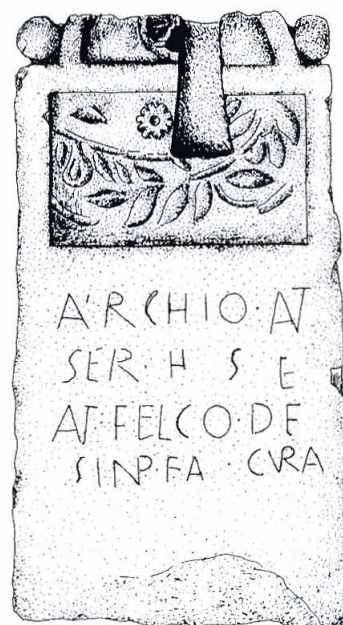 ARCHIO·AT
SER·H S E
AT·FELCO·DE
SINP·FA·CVRA